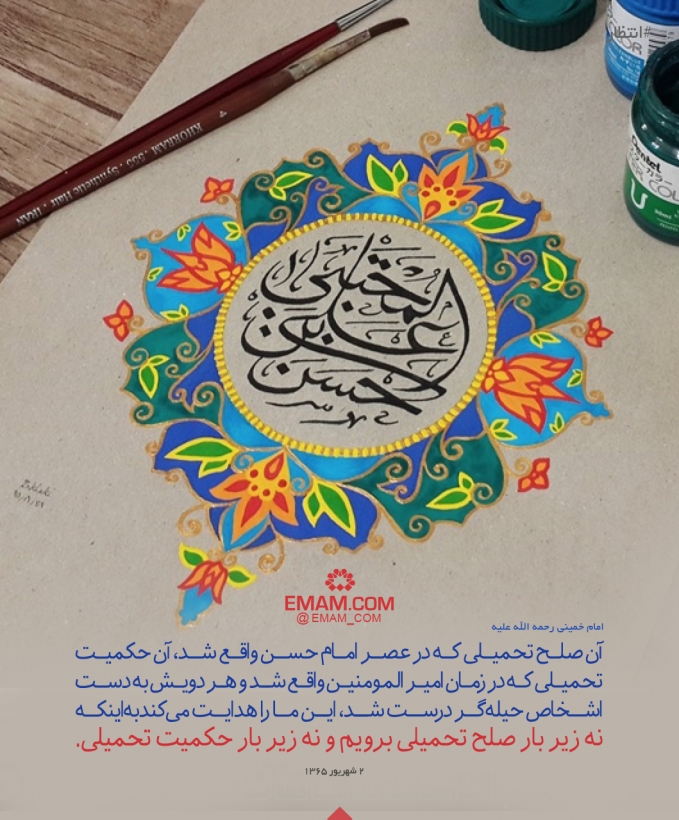 KHORRAM . 535 . Synthetic Hair IRAN
4
Pentel
المجتبی
حسن بن علی
EMAM.COM
@EMAM_COM
امام خمینی رحمه الله علیه
آن صلح تحمیلی که در عصر امام حسن واقع شد، آن حکمیت
تحمیلی که در زمان امیر المومنین واقع شد و هر دویش به دست
اشخاص حیله‌گر درست شد، این ما را هدایت می‌کند به اینکه
نه زیر بار صلح تحمیلی برویم و نه زیر بار حکمیت تحمیلی.
۲ شهریور ۱۳۶۵